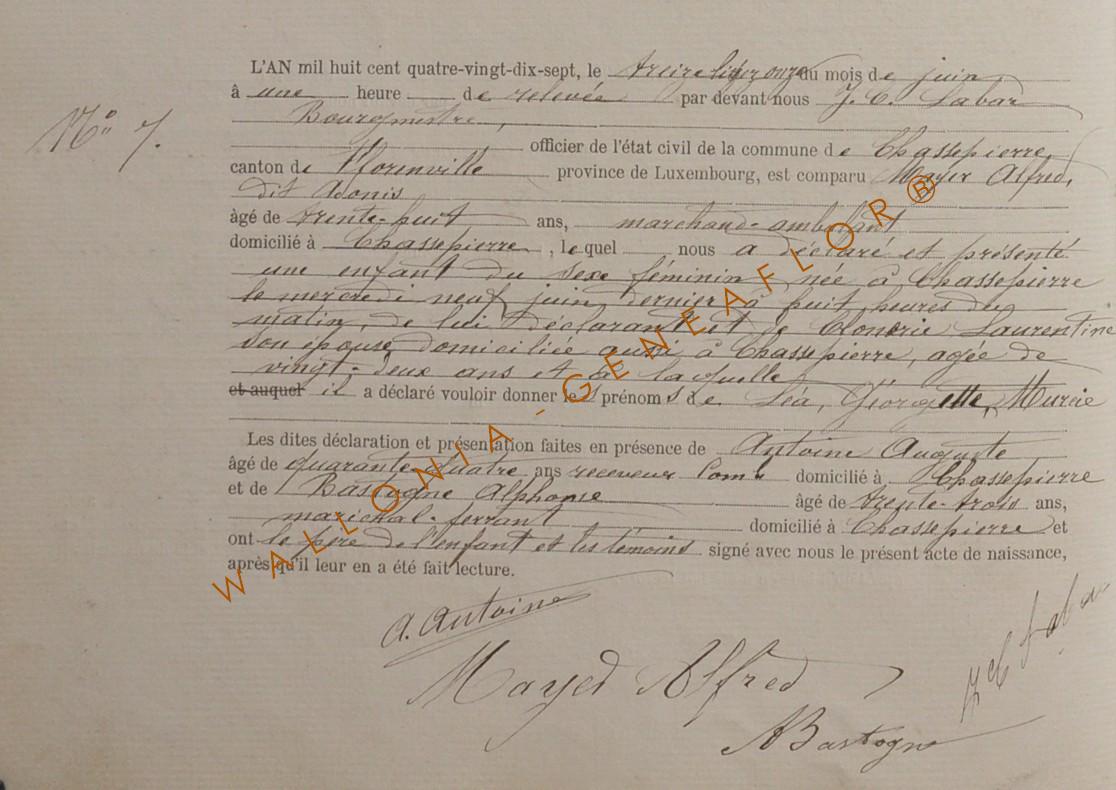 L'AN mil huit cent quatre-vingt-dix-sept, le treize du mois de juin
à une heure de relevée par devant nous J. C. Labar
Bourgmestre,
officier de l'état civil de la commune de Chassepierre,
N° 7.
canton de Florenville province de Luxembourg, est comparu Mayer Alfred,
dit Adonis
âgé de trente-huit ans, marchand-ambulant
domicilié à Chassepierre, lequel nous a déclaré et présenté
une enfant du sexe féminin née à Chassepierre
le mercredi neuf juin dernier à huit heures du
matin, de lui déclarant et de Laurentine
son épouse, domiciliée aussi à Chassepierre, agée de
vingt-deux ans et à laquelle
et auquel il a déclaré vouloir donner les prénoms de Léa, Georgette, Murcie
Les dites déclaration et présentation faites en présence de Antoine Auguste
âgé de quarante quatre ans receveur Coml domicilié à Chassepierre
et de Bastogne Alphonse âgé de trente-trois ans,
maréchal-ferrant domicilié à Chassepierre et
ont le père de l'enfant et les témoins signé avec nous le présent acte de naissance,
après qu'il leur en a été fait lecture.
A. Antoine
Mayer Alfred
JC Labar
A Bastogne
WALLONIA - GENEAFLOR®